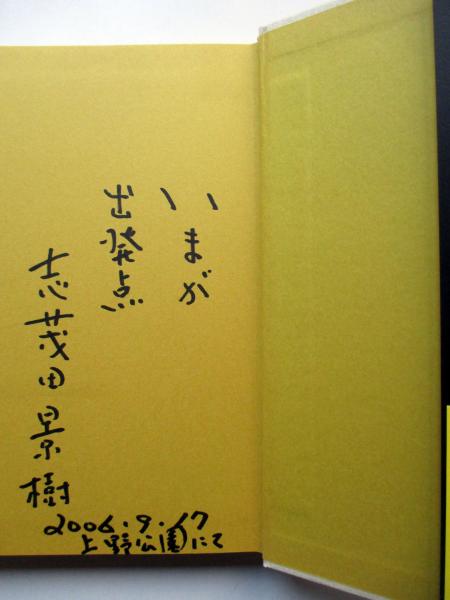 いまが
出発点
志茂田景樹
2006.9.17
上野公園にて